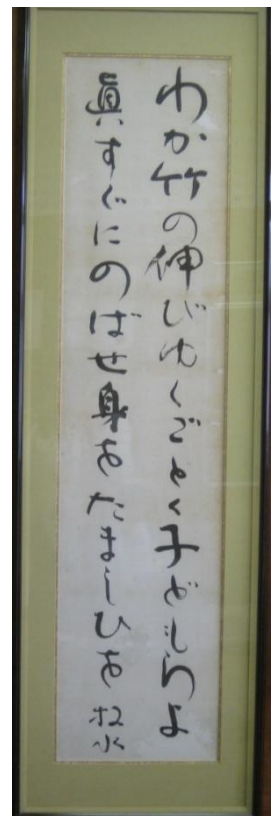 わか竹の伸びゆくごとく子どもらよ
眞すぐにのばせ身をたましひを 牧水